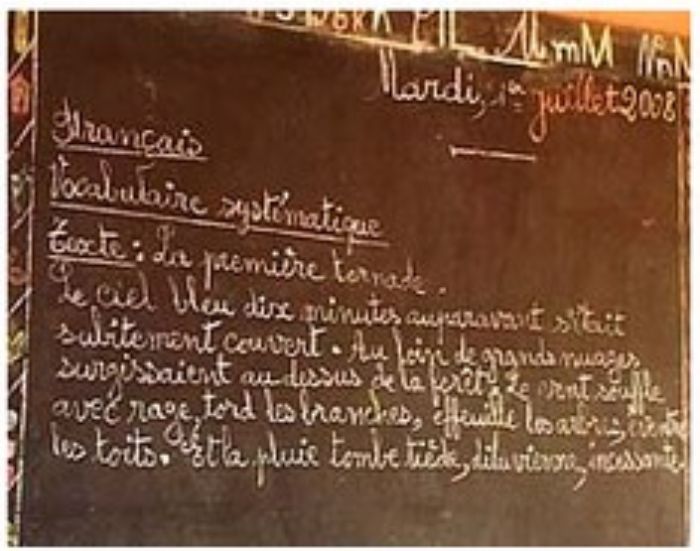 mM NnN
Mardi, 1er juillet 2008
Français
Vocabulaire systématique
Texte : La première tornade.
Le ciel bleu dix minutes auparavant s'était
subitement couvert. Au loin de grands nuages
surgissaient au dessus de la forêt. Le vent souffle
avec rage, tord les branches, effeuille les arbres,
les toits. Et la pluie tombe tiède, diluvienne, incessante.